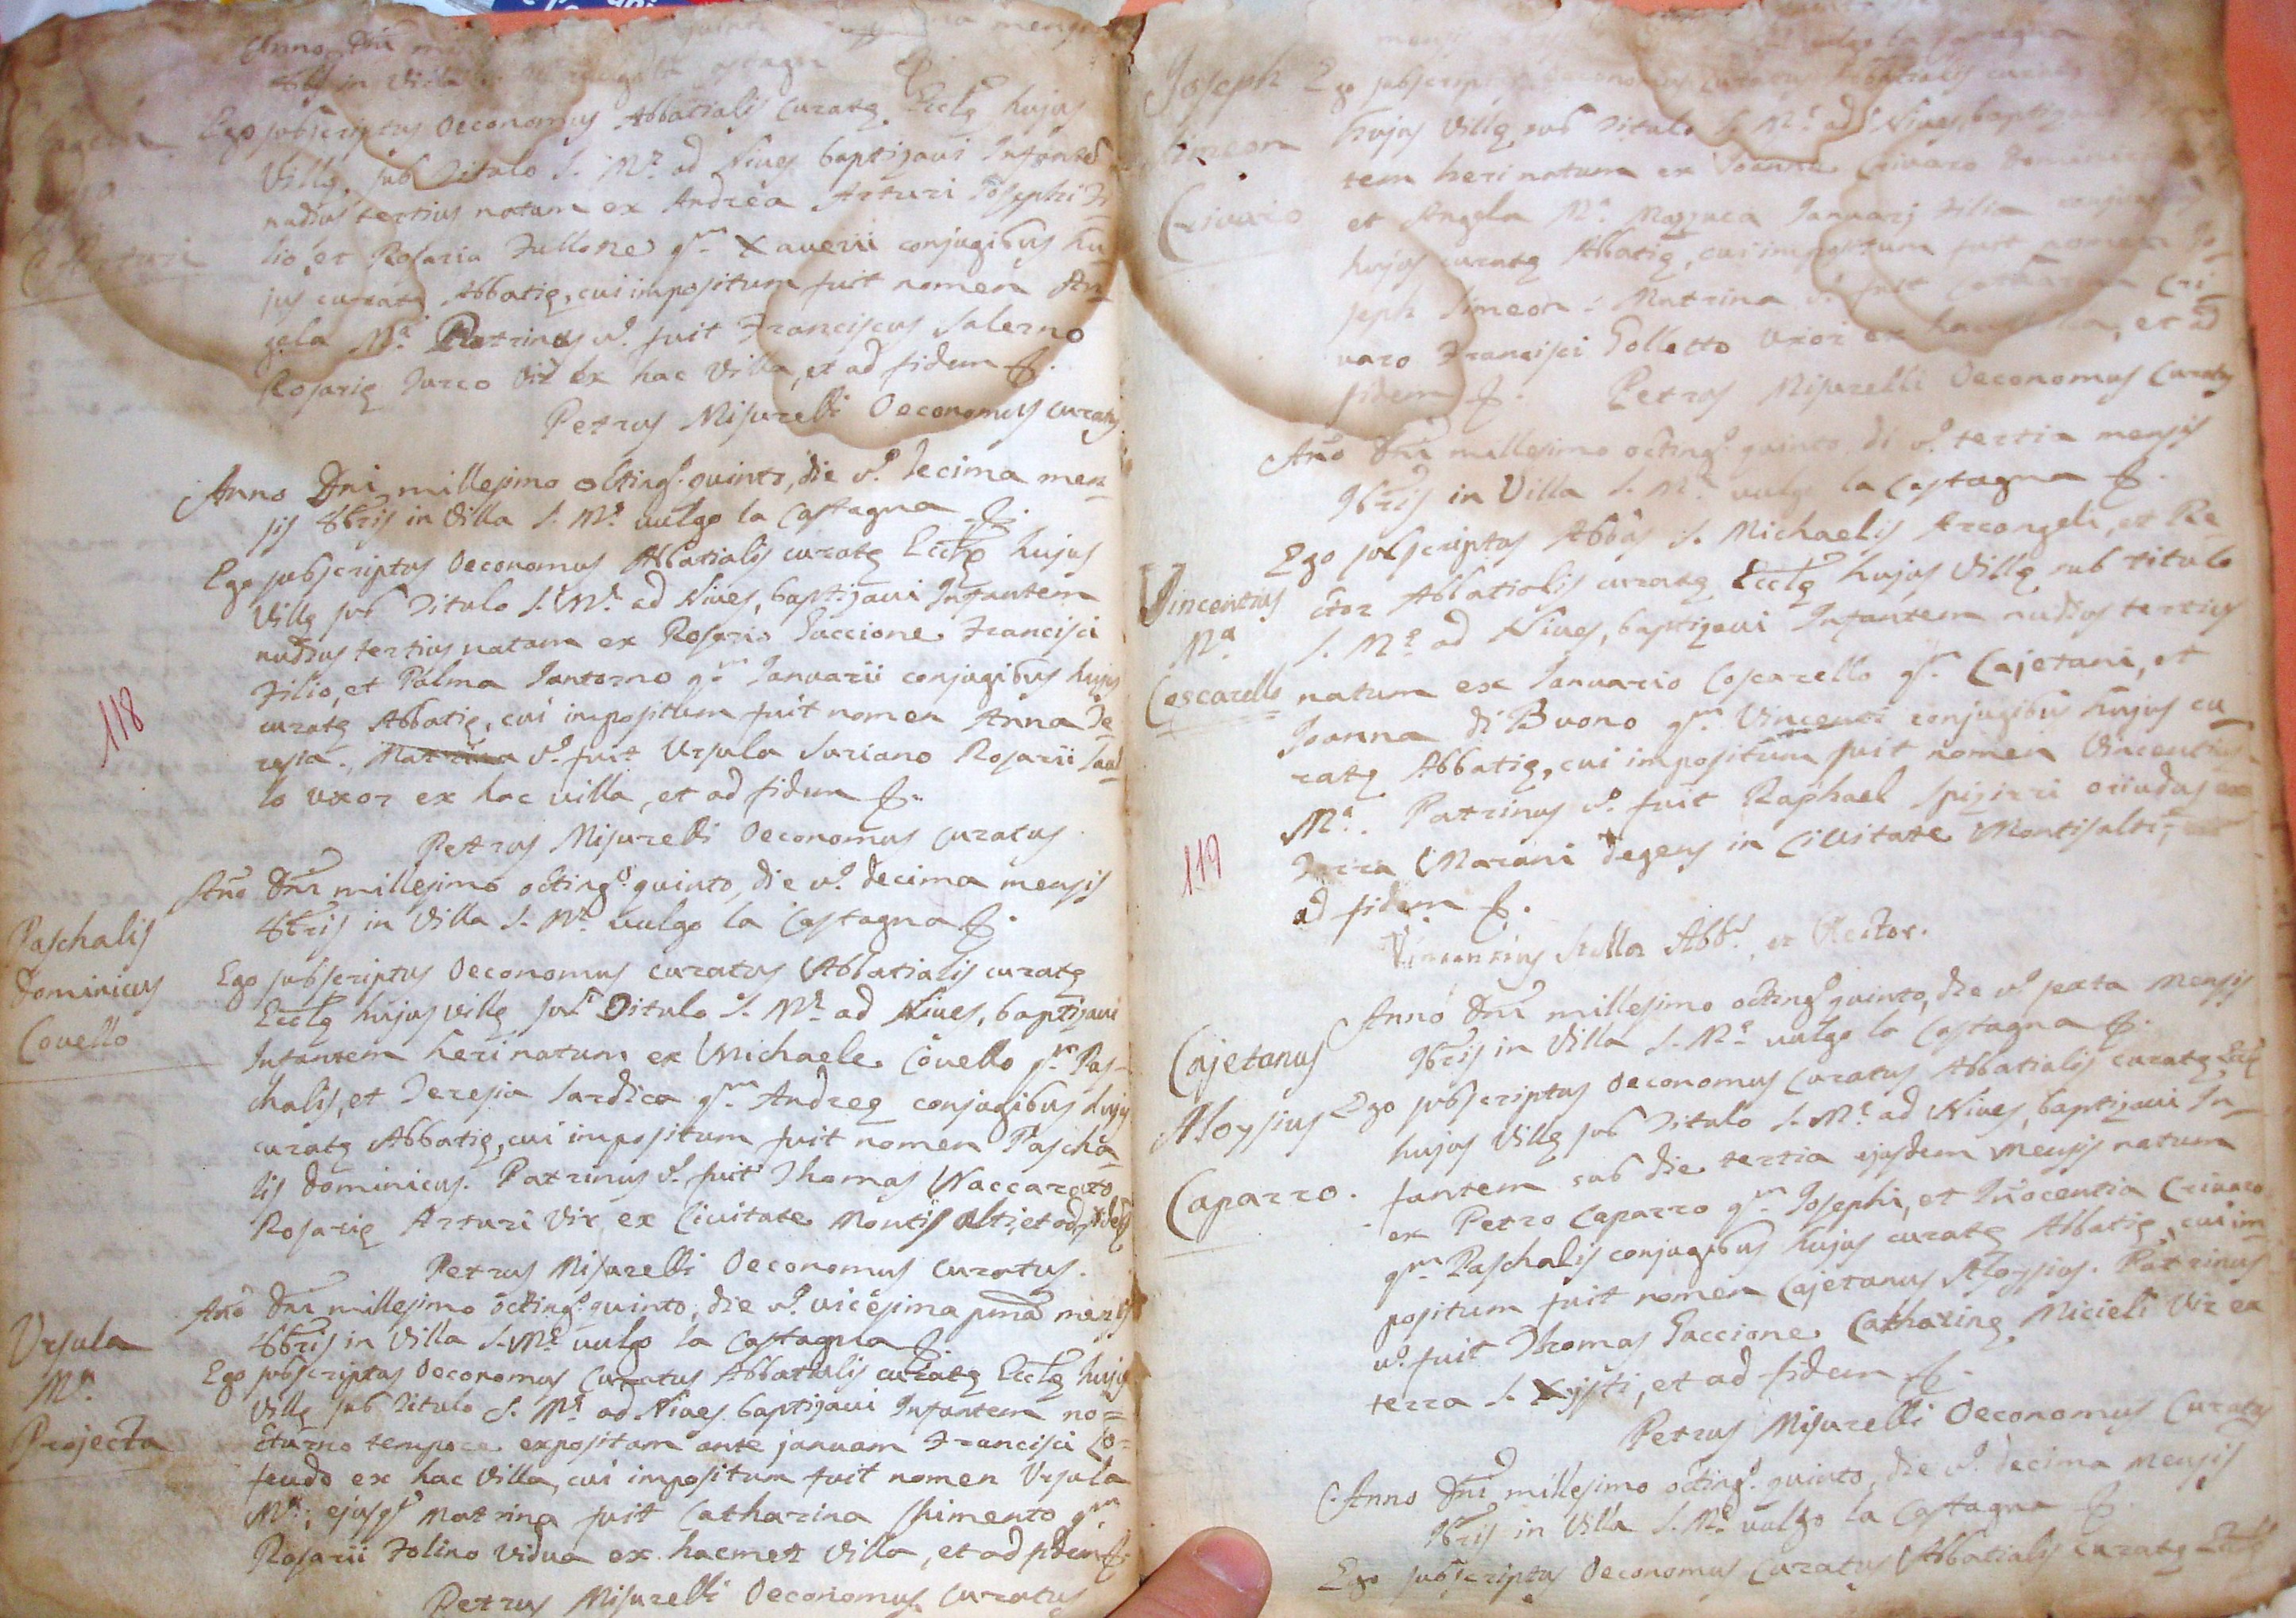 Anno Dni
8bris in Villa
Ego subscriptus Oeconomus Abbatialis Curatę Eccłę hujus
Villę, sub Titulo S. Mę ad Nives baptizavi Infantem
nudius tertius natam ex Andrea Arturi Josephi Fi-
lio, et Rosaria Fullone qm Xaverii conjugibus hu-
jus curatę Abbatię, cui impositum fuit nomen An-
gela Ma. Patrinus vo. fuit Franciscus Salerno
Rosarię Turco Vir ex hac Villa, et ad fidem &.
Petrus Misurelli Oeconomus Curatus
Arturi
Anno Dni millesimo octingo. quinto, die vo. decima men-
sis 8bris in Villa S. Mę vulgo la Castagna &.
Ego subscriptus Oeconomus Abbatialis curatę Eccłę hujus
Villę sub Titulo S. Mę ad Nives, baptizavi Infantem
nudius tertius natam ex Rosario Paccione Francisci
Filio, et Palma Santorno qm Januarii conjugibus hujus
curatę Abbatię, cui impositum fuit nomen Anna Te-
resia. Matrina vo. fuit Ursula Soriano Rosarii
lo uxor ex hac villa, et ad fidem &.
Petrus Misurelli Oeconomus Curatus.
118
Año Dni millesimo octingo. quinto, die vo. decima mensis
8bris in Villa S. Mę vulgo la Castagna &.
Paschalis
Dominicus
Covello
Ego subscriptus Oeconomus curatus Abbatialis curatę
Eccłę hujus villę sub Titulo S. Mę ad Nives, baptizavi
Infantem heri natum ex Michaele Covello qm Pas-
chalis, et Teresia Sardica qm Andreę conjugibus hujus
curatę Abbatię, cui impositum fuit nomen Pascha-
lis Dominicus. Patrinus vo. fuit Thomas Naccarato
Rosarię Arturi Vir ex Civitate Montis Alti, et ad fidem
Petrus Misurelli Oeconomus Curatus.
Año Dni millesimo octingo. quinto, die vo. vicesima pma mensis
8bris in Villa S. Mę vulgo la Castagna &.
Ursula
Ma.
Projecta
Ego subscriptus Oeconomus Curatus Abbatialis curatę Eccłę hujus
Villę sub Titulo S. Mę ad Nives baptizavi Infantem no=
cturno tempore expositam ante januam Francisci Co-
feudo ex hac Villa, cui impositum fuit nomen Ursula
Ma.; ejusq Matrina fuit Catharina Chimento qm
Rosarii Folino vidua ex hacmet Villa, et ad fidem &.
Petrus Misurelli Oeconomus Curatus
vulgo la Castagna
Joseph
Simeon
Crivaro
Ego subscriptus Oeconomus Curatus Abbatialis curatę
hujus Villę sub Titulo S. Mę ad Nives, baptizavi
tem heri natum ex Joanne Crivaro Dominici
et Angela Ma. Mazzuca Januarj Filia conjugibus
hujus curatę Abbatię, cui impositum fuit nomen Jo-
seph Simeon. Matrina vo. fuit Catharina Cri-
varo Francisci Golletto Uxor ex hac Villa, et ad
fidem &. Petrus Misurelli Oeconomus Curatus
Año Dni millesimo octingo. quinto di vo. tertia mensis
9bris in Villa S. Mę vulgo la Castagna &.
Vincentius
Ma
Coscarello
Ego subscriptus Abbas S. Michaelis Arcangeli, et Re-
ctor Abbatialis curatę Eccłę hujus Villę sub titulo
S. Mę ad Nives, baptizavi Infantem nudius tertius
natum ex Januario Coscarello qm Cajetani, et
Joanna di Buono qm Vincenti conjugibus hujus cu-
ratę Abbatię, cui impositum fuit nomen Vincentius
Ma. Patrinus vo. fuit Raphael Spizirri oriudus
Terra Marani degens in Civitate Montisalti,
ad fidem &.
Vincentius Stella Abbs. et Rector.
119
Anno Dni millesimo octingo. quinto, die vo. sexta Mensis
9bris in Villa S. Mę vulgo la Castagna &.
Cajetanus
Aloysius
Caparro.
Ego subscriptus Oeconomus Curatus Abbatialis curatę Eccłę
hujus Villę sub Titulo S. Mę ad Nives, baptizavi In-
fantem sub die tertia ejusdem Mensis natum
ex Petro Caparro qm Josephi, et Iñocentia Crivaro
qm Paschalis conjugibus hujus curatę Abbatię, cui im-
positum fuit nomen Cajetanus Aloysius. Patrinus
vo. fuit Thomas Paccione Catharinę Micieli Vir ex
terra S. Xysti, et ad fidem &.
Petrus Misurelli Oeconomus Curatus
Anno Dni millesimo octingo. quinto, die vo. decima Mensis
9bris in Villa S. Mę vulgo la Castagna &.
Ego subscriptus Oeconomus Curatus Abbatialis curatę Eccłę